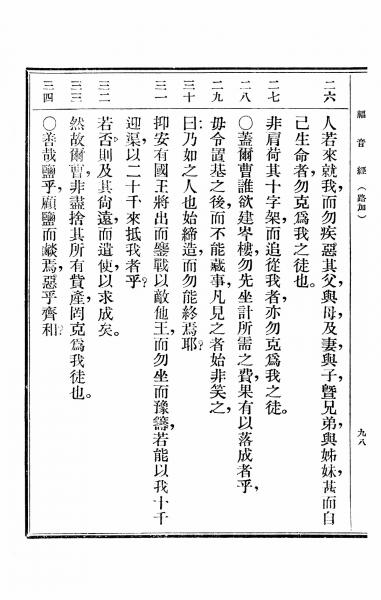 福音經（路加）
九八
二六 人若來就我，而勿疾惡其父與母，及妻與子，暨兄弟與姊妹，甚而自
己生命者，勿克爲我之徒也。
二七 非肩荷其十字架而追從我者，亦勿克爲我之徒。
二八 〇蓋爾曹誰欲建岑樓，勿先坐計所需之費，果有以落成者乎，
二九 毋令置基之後，而不能蕆事，凡見之者始非笑之，
三十 曰，乃如之人也，始締造而勿能終焉耶？
三一 抑安有國王將出而鏖戰以敵他王，而勿坐而豫籌，若能以我十千
迎渠以二十千來抵我者乎？
三二 若否，則及其尙遠，而遣使以求成矣。
三三 然故爾曹，非盡捨其所有貲產，罔克爲我徒也。
三四 〇善哉鹽乎，顧鹽而𦧈焉，惡乎齊和？